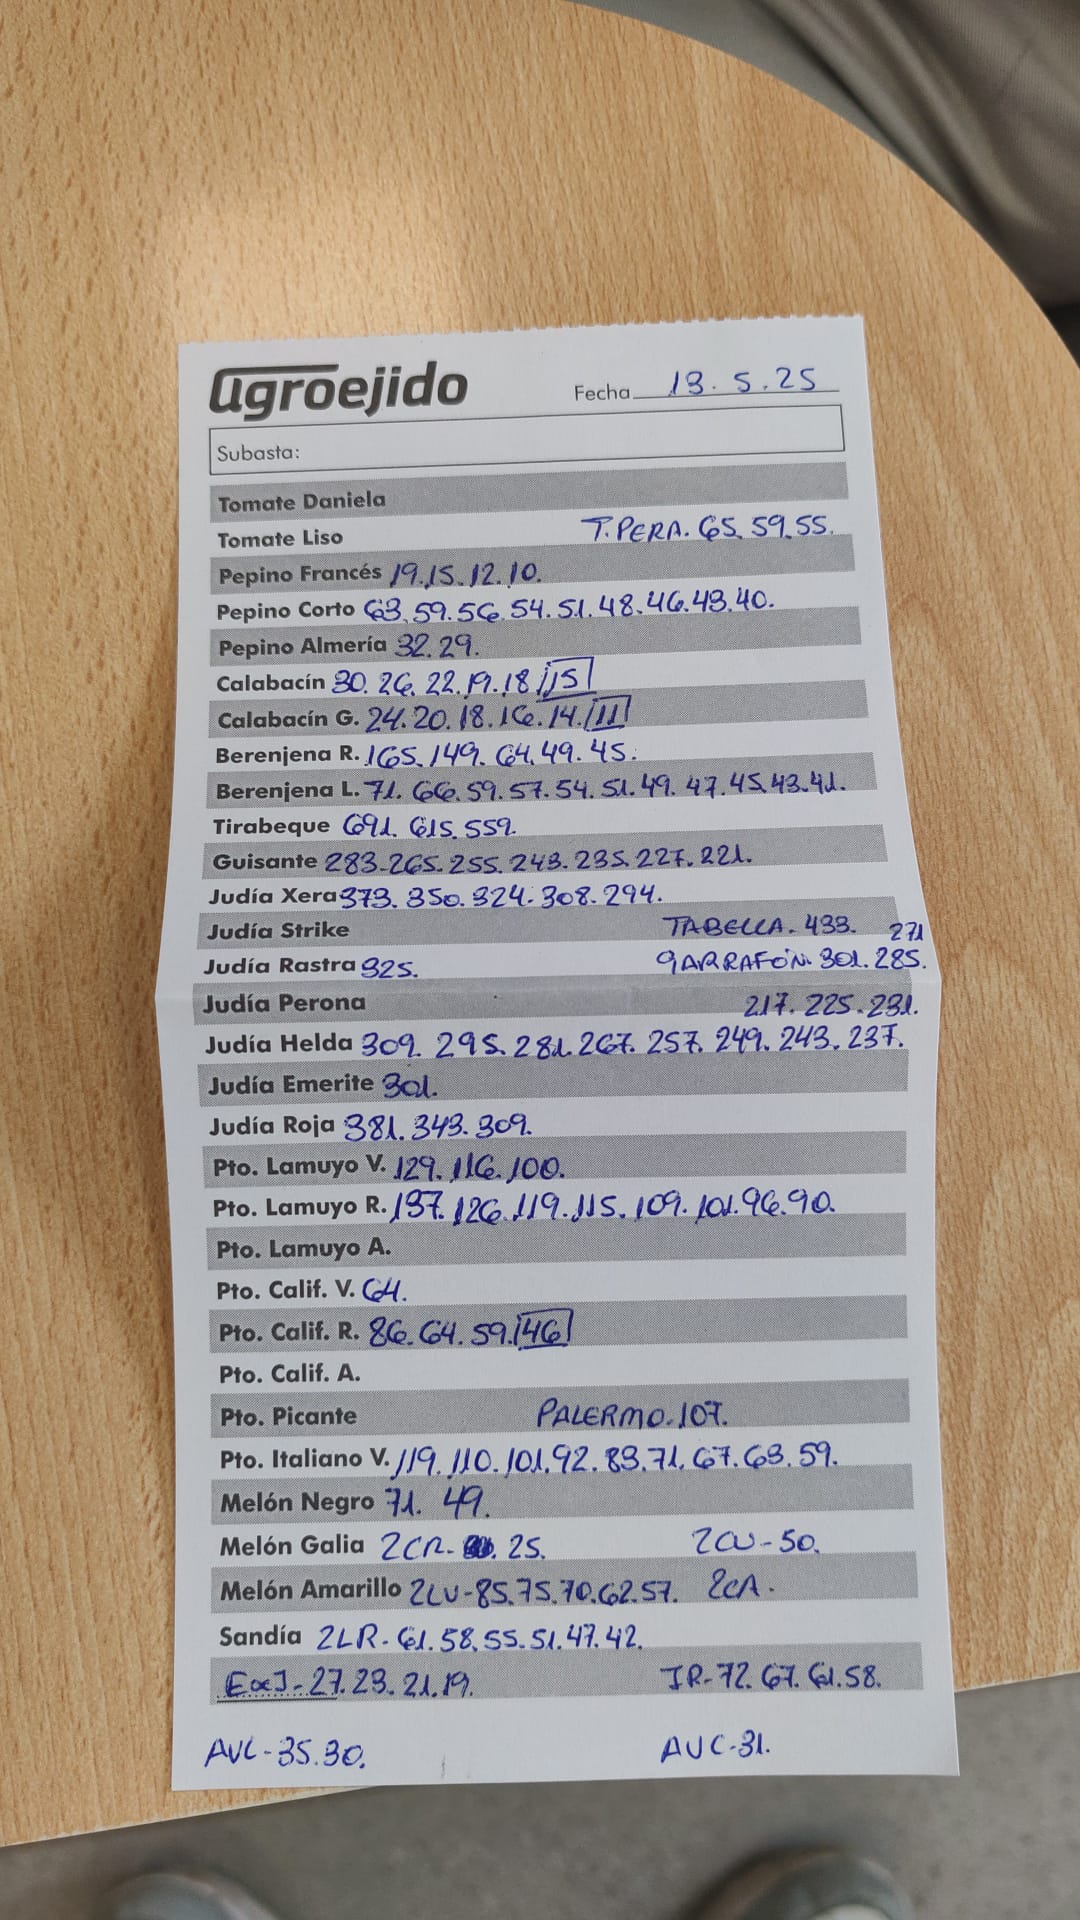 agroejido Fecha 13.5.25
Subasta:
Tomate Daniela
Tomate Liso T.PERA. 65.59.55.
Pepino Francés 19.15.12.10.
Pepino Corto 63.59.56.54.51.48.46.43.40.
Pepino Almería 32.29.
Calabacín 30.26.22.19.18/15
Calabacín G. 24.20.18.16.14./11
Berenjena R. 165.149.64.49.45.
Berenjena L. 71.66.59.57.54.51.49.47.45.43.41.
Tirabeque 691.615.559.
Guisante 283-265.255.243.235.227.221.
Judía Xera 373.350.324.308.294.
Judía Strike TABELLA. 433. 271
Judía Rastra 325. GARRAFÓN. 301.285.
Judía Perona 217.225.231.
Judía Helda 309.295.281.267.257.249.243.237.
Judía Emerite 301.
Judía Roja 381.343.309.
Pto. Lamuyo V. 129.116.100.
Pto. Lamuyo R. 137.126.119.115.109.101.96.90.
Pto. Lamuyo A.
Pto. Calif. V. 64.
Pto. Calif. R. 86.64.59.46
Pto. Calif. A.
Pto. Picante PALERMO.107.
Pto. Italiano V. 119.110.101.92.83.71.67.63.59.
Melón Negro 71.49.
Melón Galia 2CR- 25. 2CU-50.
Melón Amarillo 2LV-85.75.70.62.57. 2CA.
Sandía 2LR-61.58.55.51.47.42.
27.23.21.19. IR-72.67.61.58.
AVL-35.30. AUC-31.